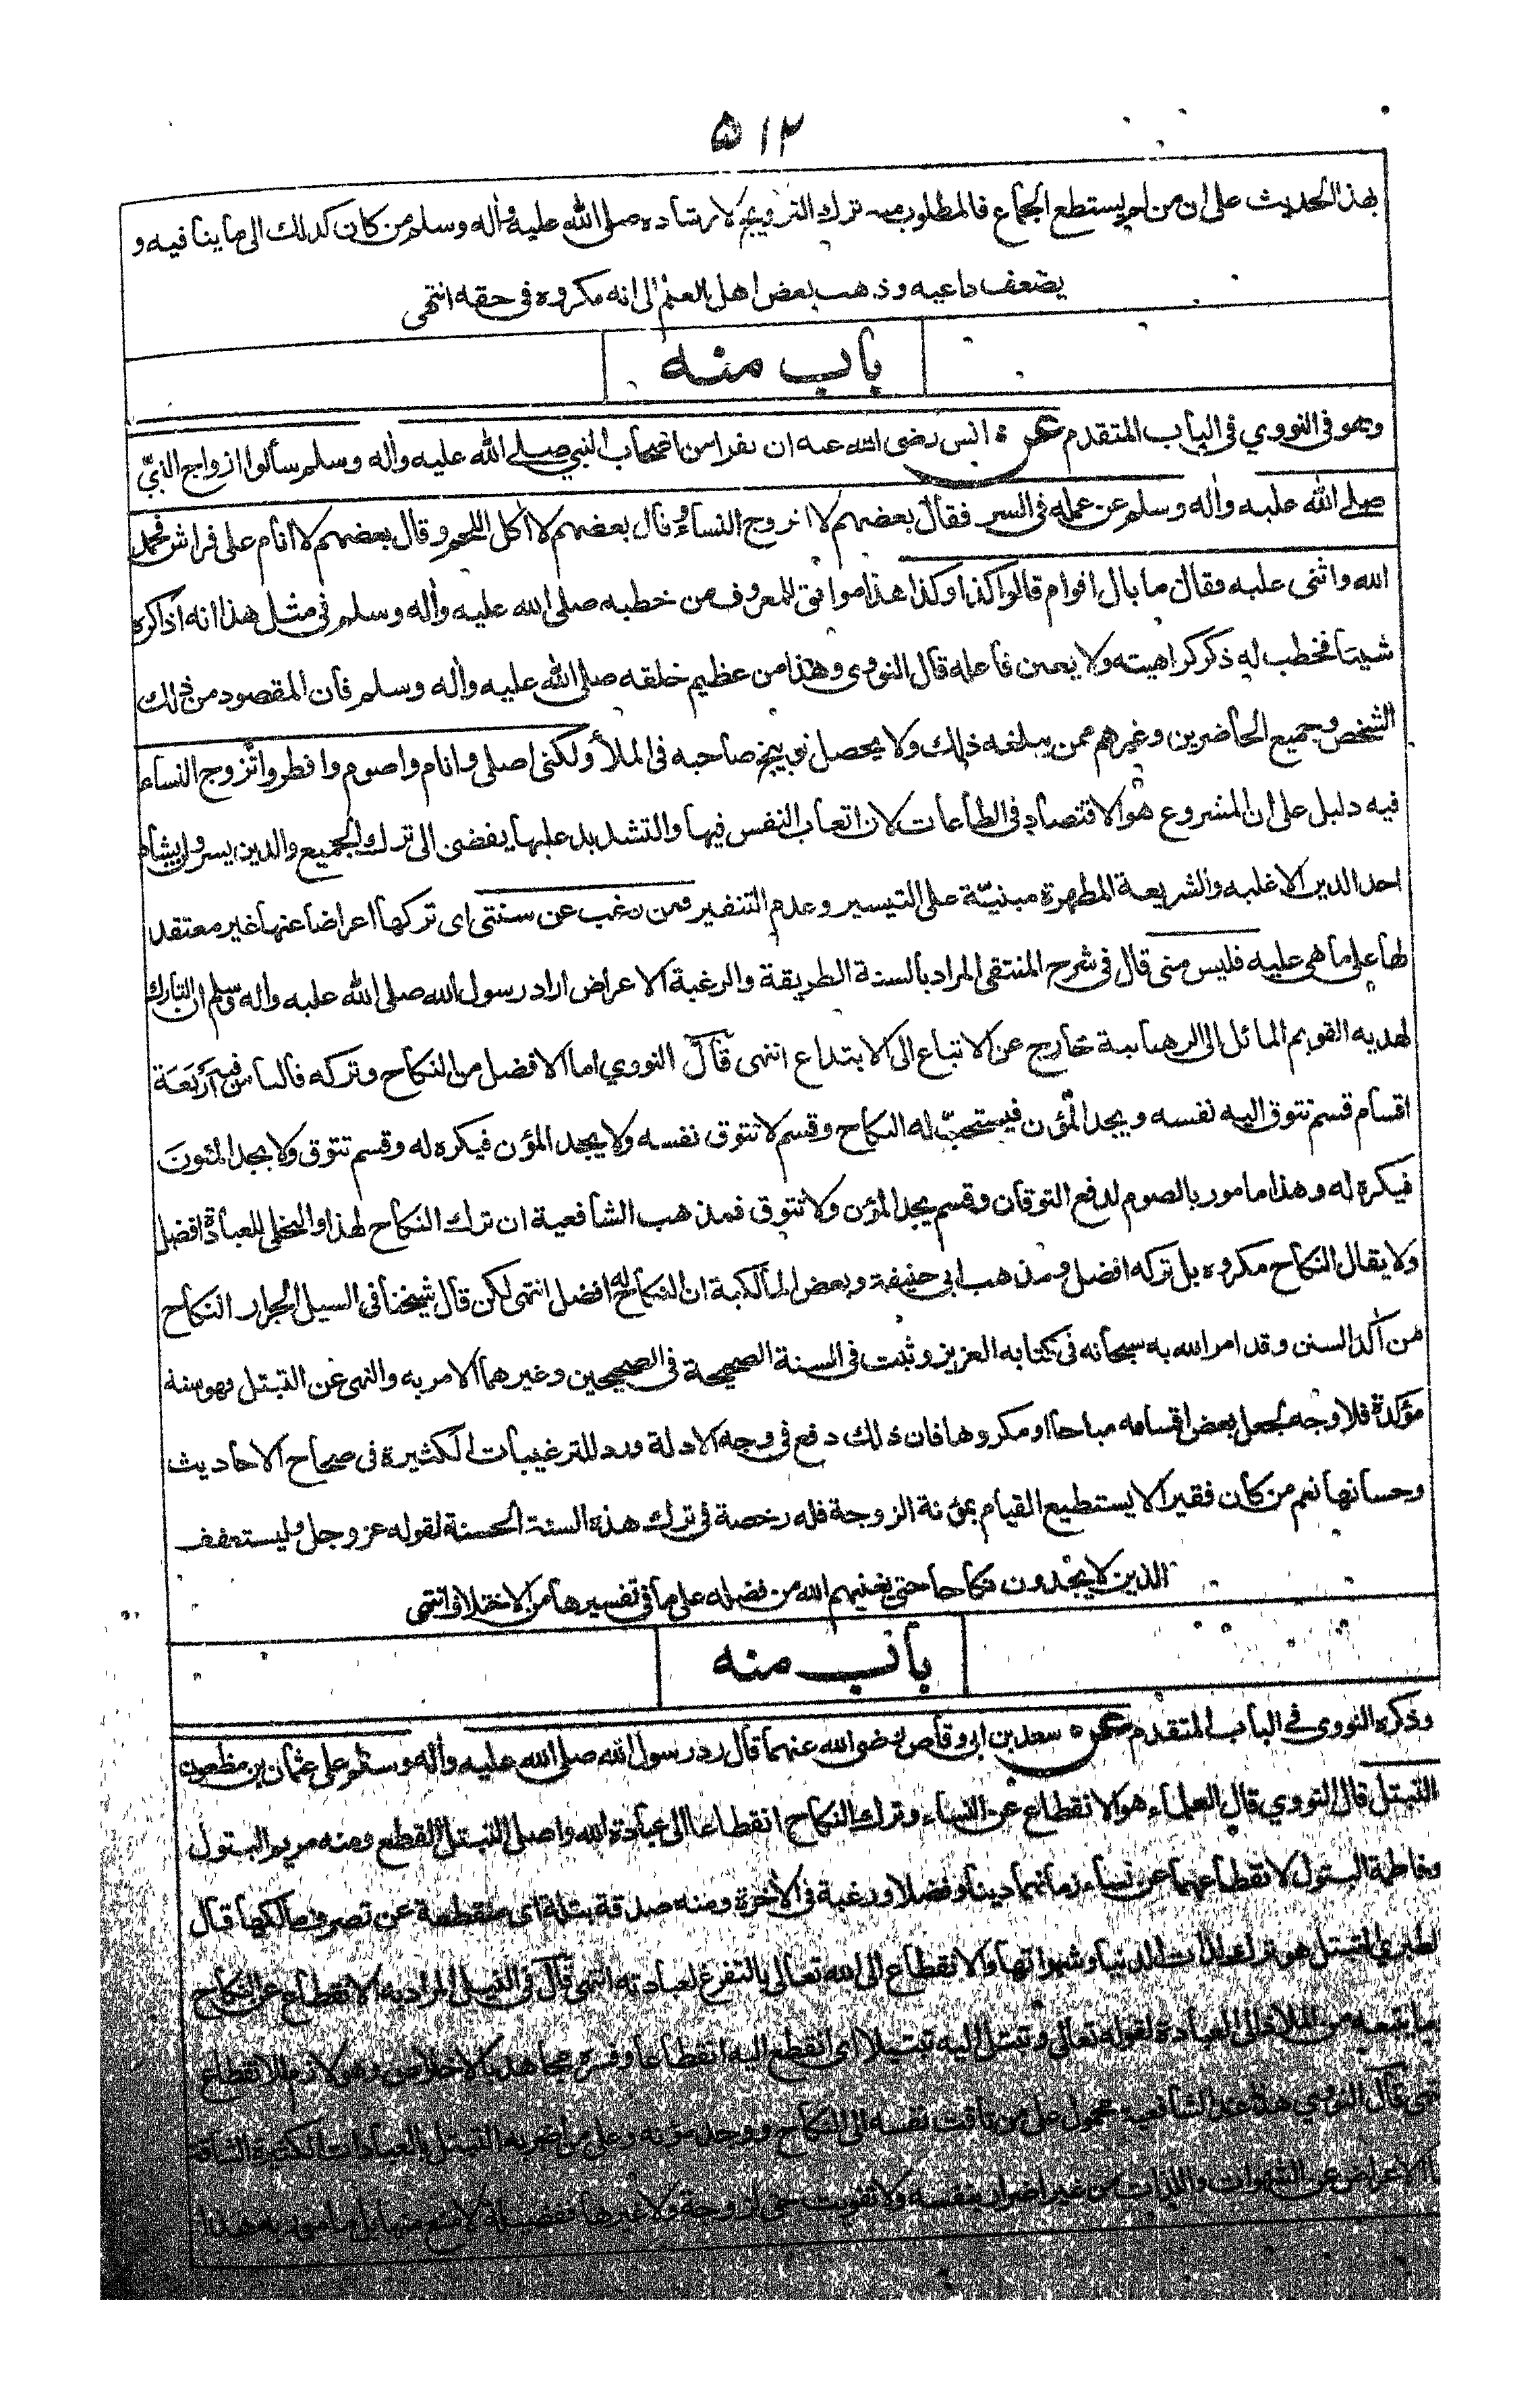 ۵۱۲
بهذا الحديث على ان من لم يستطع الجماع فالمطلوب منه ترك التزويج لارشاده صلى الله عليه واله وسلم من كان كذلك الى ما ينافيه و
يضعف داعيه وذهب بعض اهل العلم الى انه مكروه فى حقه انتهى
باب منه
وهو فى النووي فى الباب المتقدم عن انس رضى الله عنه ان نفرا من اصحاب النبي صلى الله عليه واله وسلم سألوا ازواج النبيّ
صلى الله عليه واله وسلم عن عمله فى السر فقال بعضهم لا اتزوج النساء وقال بعضهم لا اكل اللحم وقال بعضهم لا انام على فراش فحمد
الله واثنى عليه فقال ما بال اقوام قالوا كذا وكذا هذا موافق للمعروف من خطبه صلى الله عليه واله وسلم فى مثل هذا انه اذا كره
شيئا فخطب له ذكر كراهيته ولا يعين فاعله قال النووى وهذا من عظيم خلقه صلى الله عليه واله وسلم فان المقصود من ذلك
الشخص وجميع الحاضرين وغيرهم ممن يبلغه ذلك ولا يحصل توبيخ صاحبه فى الملأ ولكنى اصلى وانام واصوم وافطر واتزوج النساء
فيه دليل على ان المشروع هو الاقتصاد فى الطاعات لان اتعاب النفس فيها والتشديد عليها يفضى الى ترك الجميع والدين يسر ولن يشاد
احد الدين الا غلبه والشريعة المطهرة مبنيّة على التيسير وعدم التنفير فمن رغب عن سنتى اى تركها اعراضا عنها غير معتقد
لها على ما هى عليه فليس منى قال فى شرح المنتقى المراد بالسنة الطريقة والرغبة الاعراض اراد رسول الله صلى الله عليه واله وسلم ان التارك
لهديه القويم المائل الى الرهبانية خارج عن الاتباع الى الابتداع انتهى قال النووي اما الافضل من النكاح وتركه فالناس فيه اربعة
اقسام قسم تتوق اليه نفسه ويجد المؤن فيستحبّ له النكاح وقسم لا تتوق نفسه ولا يجد المؤن فيكره له وقسم تتوق ولا يجد المئون
فيكره له وهذا مامور بالصوم لدفع التوقان وقسم يجد المؤن ولا تتوق فمذهب الشافعية ان ترك النكاح لهذا والتخلى للعبادة افضل
ولا يقال النكاح مكروه بل تركه افضل ومذهب ابى حنيفة وبعض المالكية ان النكاح له افضل انتهى لكن قال شيخنا فى السيل الجرار النكاح
من اكد السنن وقد امر الله به سبحانه فى كتابه العزيز وثبت فى السنة الصحيحة فى الصحيحين وغيرهما الامر به والنهى عن التبتل فهو سنة
مؤكدة فلا وجه لجعل بعض اقسامه مباحا او مكروها فان ذلك دفع فى وجه الادلة ورد للترغيبات الكثيرة فى صحاح الاحاديث
وحسانها نعم من كان فقيرا لا يستطيع القيام بمؤنة الزوجة فله رخصة فى ترك هذه السنة الحسنة لقوله عز وجل وليستعفف
الذين لا يجدون نكاحا حتى يغنيهم الله من فضله على ما فى تفسيرها من الاختلاف انتهى
باب منه
وذكره النووى فى الباب المتقدم عن سعد بن ابى وقاص رضى الله عنهما قال رد رسول الله صلى الله عليه واله وسلم على عثمان بن مظعون
التبتل قال النووي قال العلماء هو الانقطاع عن النساء وترك النكاح انقطاعا الى عبادة الله واصل التبتل القطع ومنه مريم البتول
وفاطمة البتول لانقطاعهما عن نساء زمانهما دينا وفضلا ورغبة فى الأخرة ومنه صدقة بتلة اى منقطعة عن تصرف مالكها قال
الطبري التبتل هو ترك لذات الدنيا وشهواتها والانقطاع الى الله تعالى بالتفرغ لعبادته انتهى قال فى النيل المراد به الانقطاع عن النكاح
وما يتبعه من الملاذ الى العبادة لقوله تعالى وتبتل اليه تبتيلا اى انقطع اليه انقطاعا وفسره مجاهد بالاخلاص وهو لازم للانقطاع
قال النووي هذا عند الشافعية محمول على من تاقت نفسه الى النكاح ووجد مؤنه وعلى من اضر به التبتل بالعبادات الكثيرة الشاقة
الاعراض عن الشهوات واللذات من غير اضرار بنفسه ولا تفويت حق لزوجة ولا غيرها ففضيلة لا منع منها بل مامور به هذا